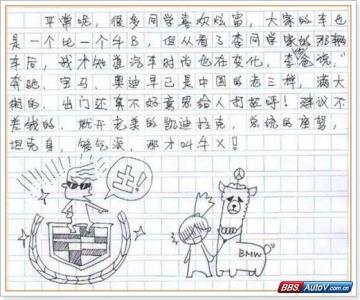 平常呢，很多同学喜欢炫富，大家的车也
是一个比一个牛B，但从看了李同学家的那辆
车后，我才知道汽车时尚也在变化，李爸说，
奔驰、宝马、奥迪早已是中国的老三样，满大
街的，出门还真不好意思给人打招呼！建议不
差钱的，就开老美的凯迪拉克，总统的座驾，
坦克身，够气派，那才叫牛X！
土！
BMW
BBS.AutoV.com.cn